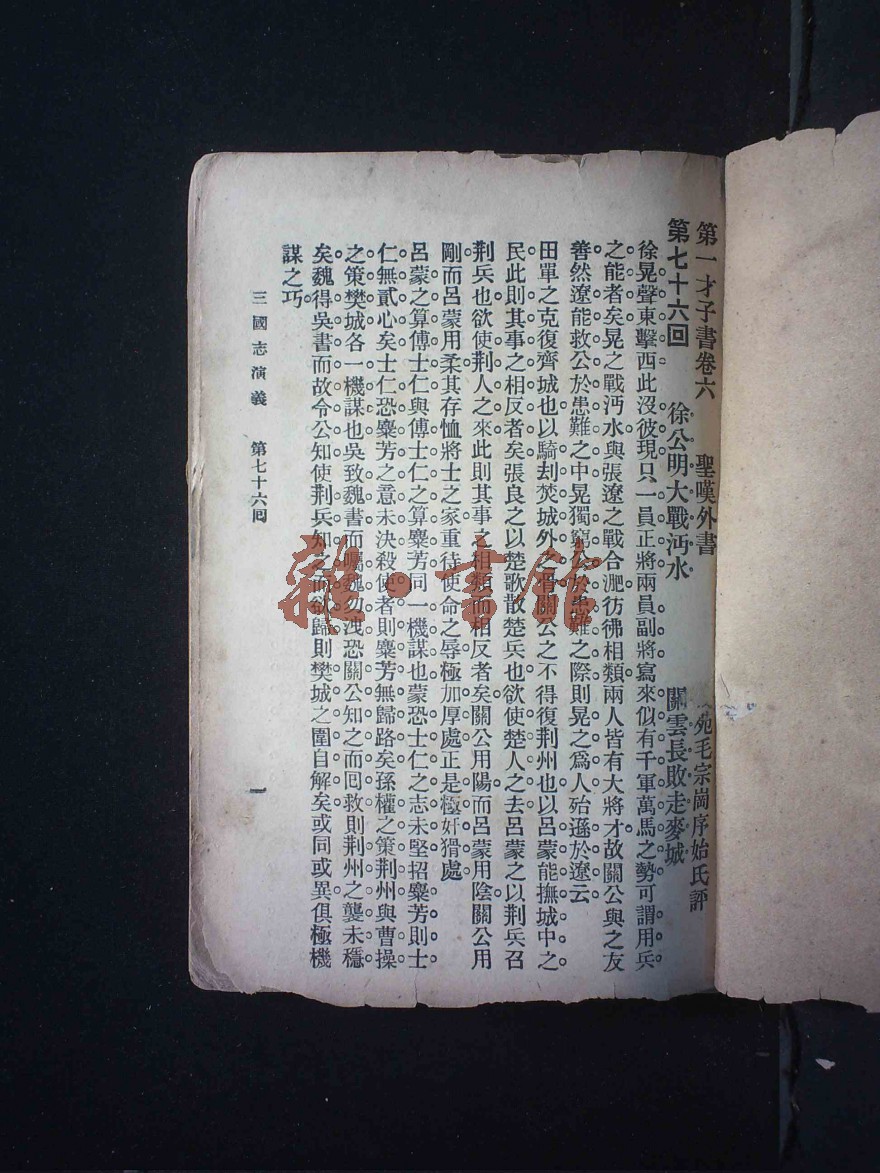 第一才子書卷六 聖嘆外書 苑毛宗崗序始氏評
第七十六回 徐公明大戰沔水 關雲長敗走麥城
徐晃聲東擊西此沒彼現只一員正將兩員副將寫來似有千軍萬馬之勢可謂用兵
之能者矣晃之戰沔水與張遼之戰合淝彷彿相類兩人皆有大將才故關公與之友
善然遼能救公於患難之中晃獨窮公於患難之際則晃之爲人殆遜於遼云
田單之克復齊城也以騎刦焚城外之骨關公之不得復荆州也以呂蒙能撫城中之
民此則其事之相反者矣張良之以楚歌散楚兵也欲使楚人之去呂蒙之以荆兵召
荆兵也欲使荆人之來此則其事之相類而相反者矣關公用陽而呂蒙用陰關公用
剛而呂蒙用柔其存恤將士之家重待使命之辱極加厚處正是極奸猾處
呂蒙之算傅士仁與傅士仁之算麋芳同一機謀也蒙恐士仁之志未堅招麋芳則士
仁無貳心矣士仁恐麋芳之意未決殺使者則麋芳無歸路矣孫權之策荆州與曹操
之策樊城各一機謀也吳致魏書而囑魏勿洩恐關公知之而回救則荆州之襲未穩
矣魏得吳書而故令公知使荆兵知之而欲歸則樊城之圍自解矣或同或異俱極機
謀之巧
三國志演義 第七十六回 一
雜·書館